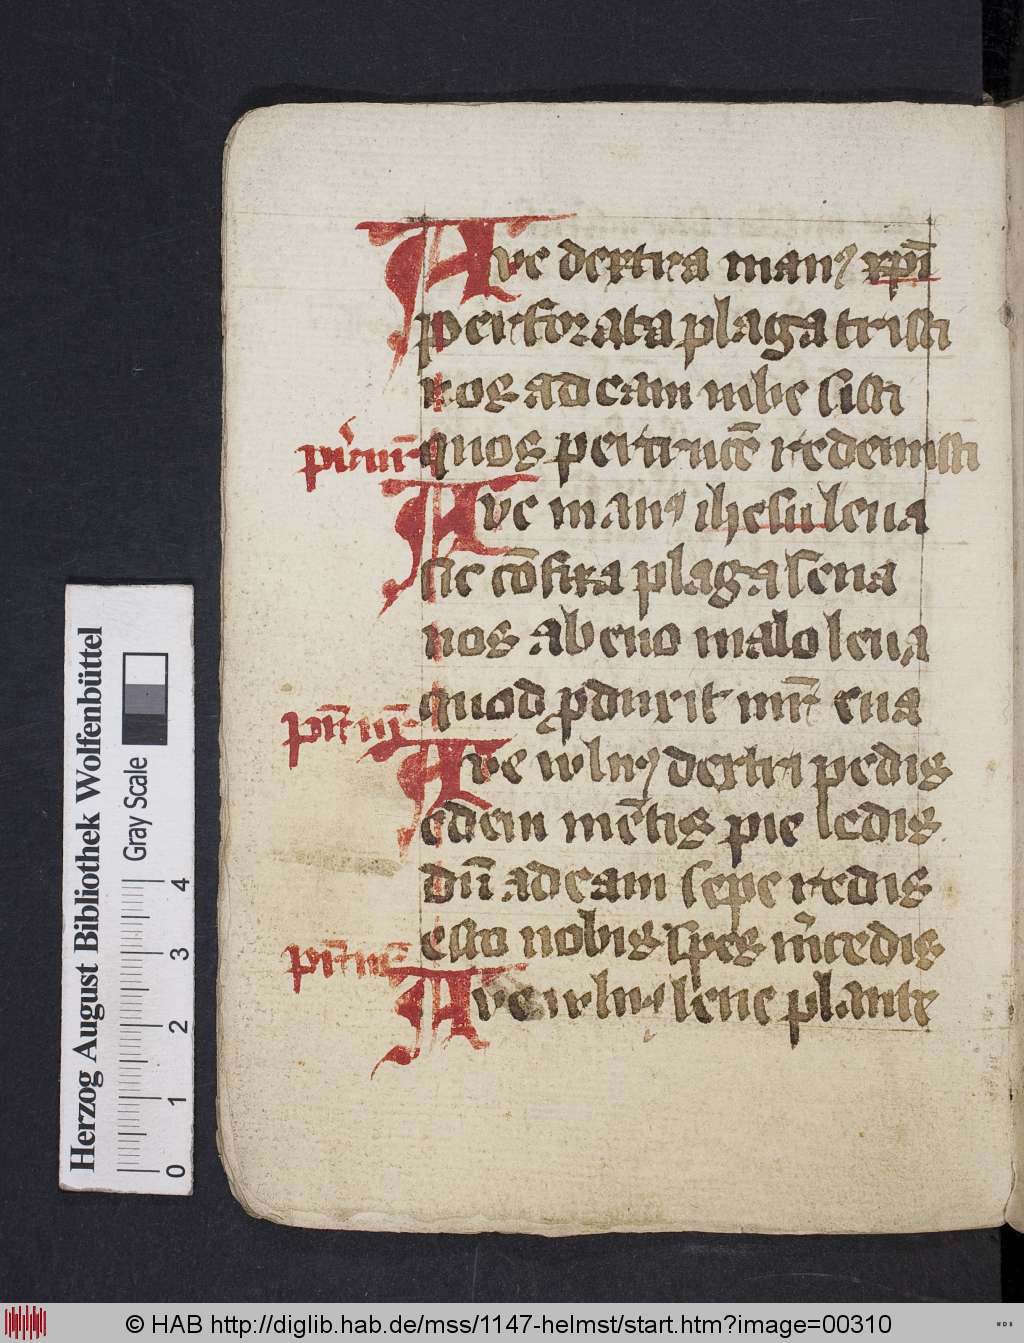 Ave dextra manꝰ xp̄i
perforata plaga tristi
nos ad eam iube sisti
quos per crucē redemisti
pr̄ nr̄
Ave manꝰ ihesu leua
sic cōfixa plaga seua
nos ab euo malo leua
quod ꝓduxit mr̄ eua
pr̄ nr̄
Ave wlnꝰ dextri pedis
edem mētis pie ledis
dū ad eam sepe redis
esto nobis spes m̄cedis
pr̄ nr̄
Ave wlnꝰ leue plante
Herzog August Bibliothek Wolfenbüttel
Gray Scale
0 1 2 3 4
© HAB http://diglib.hab.de/mss/1147-helmst/start.htm?image=00310
WDB